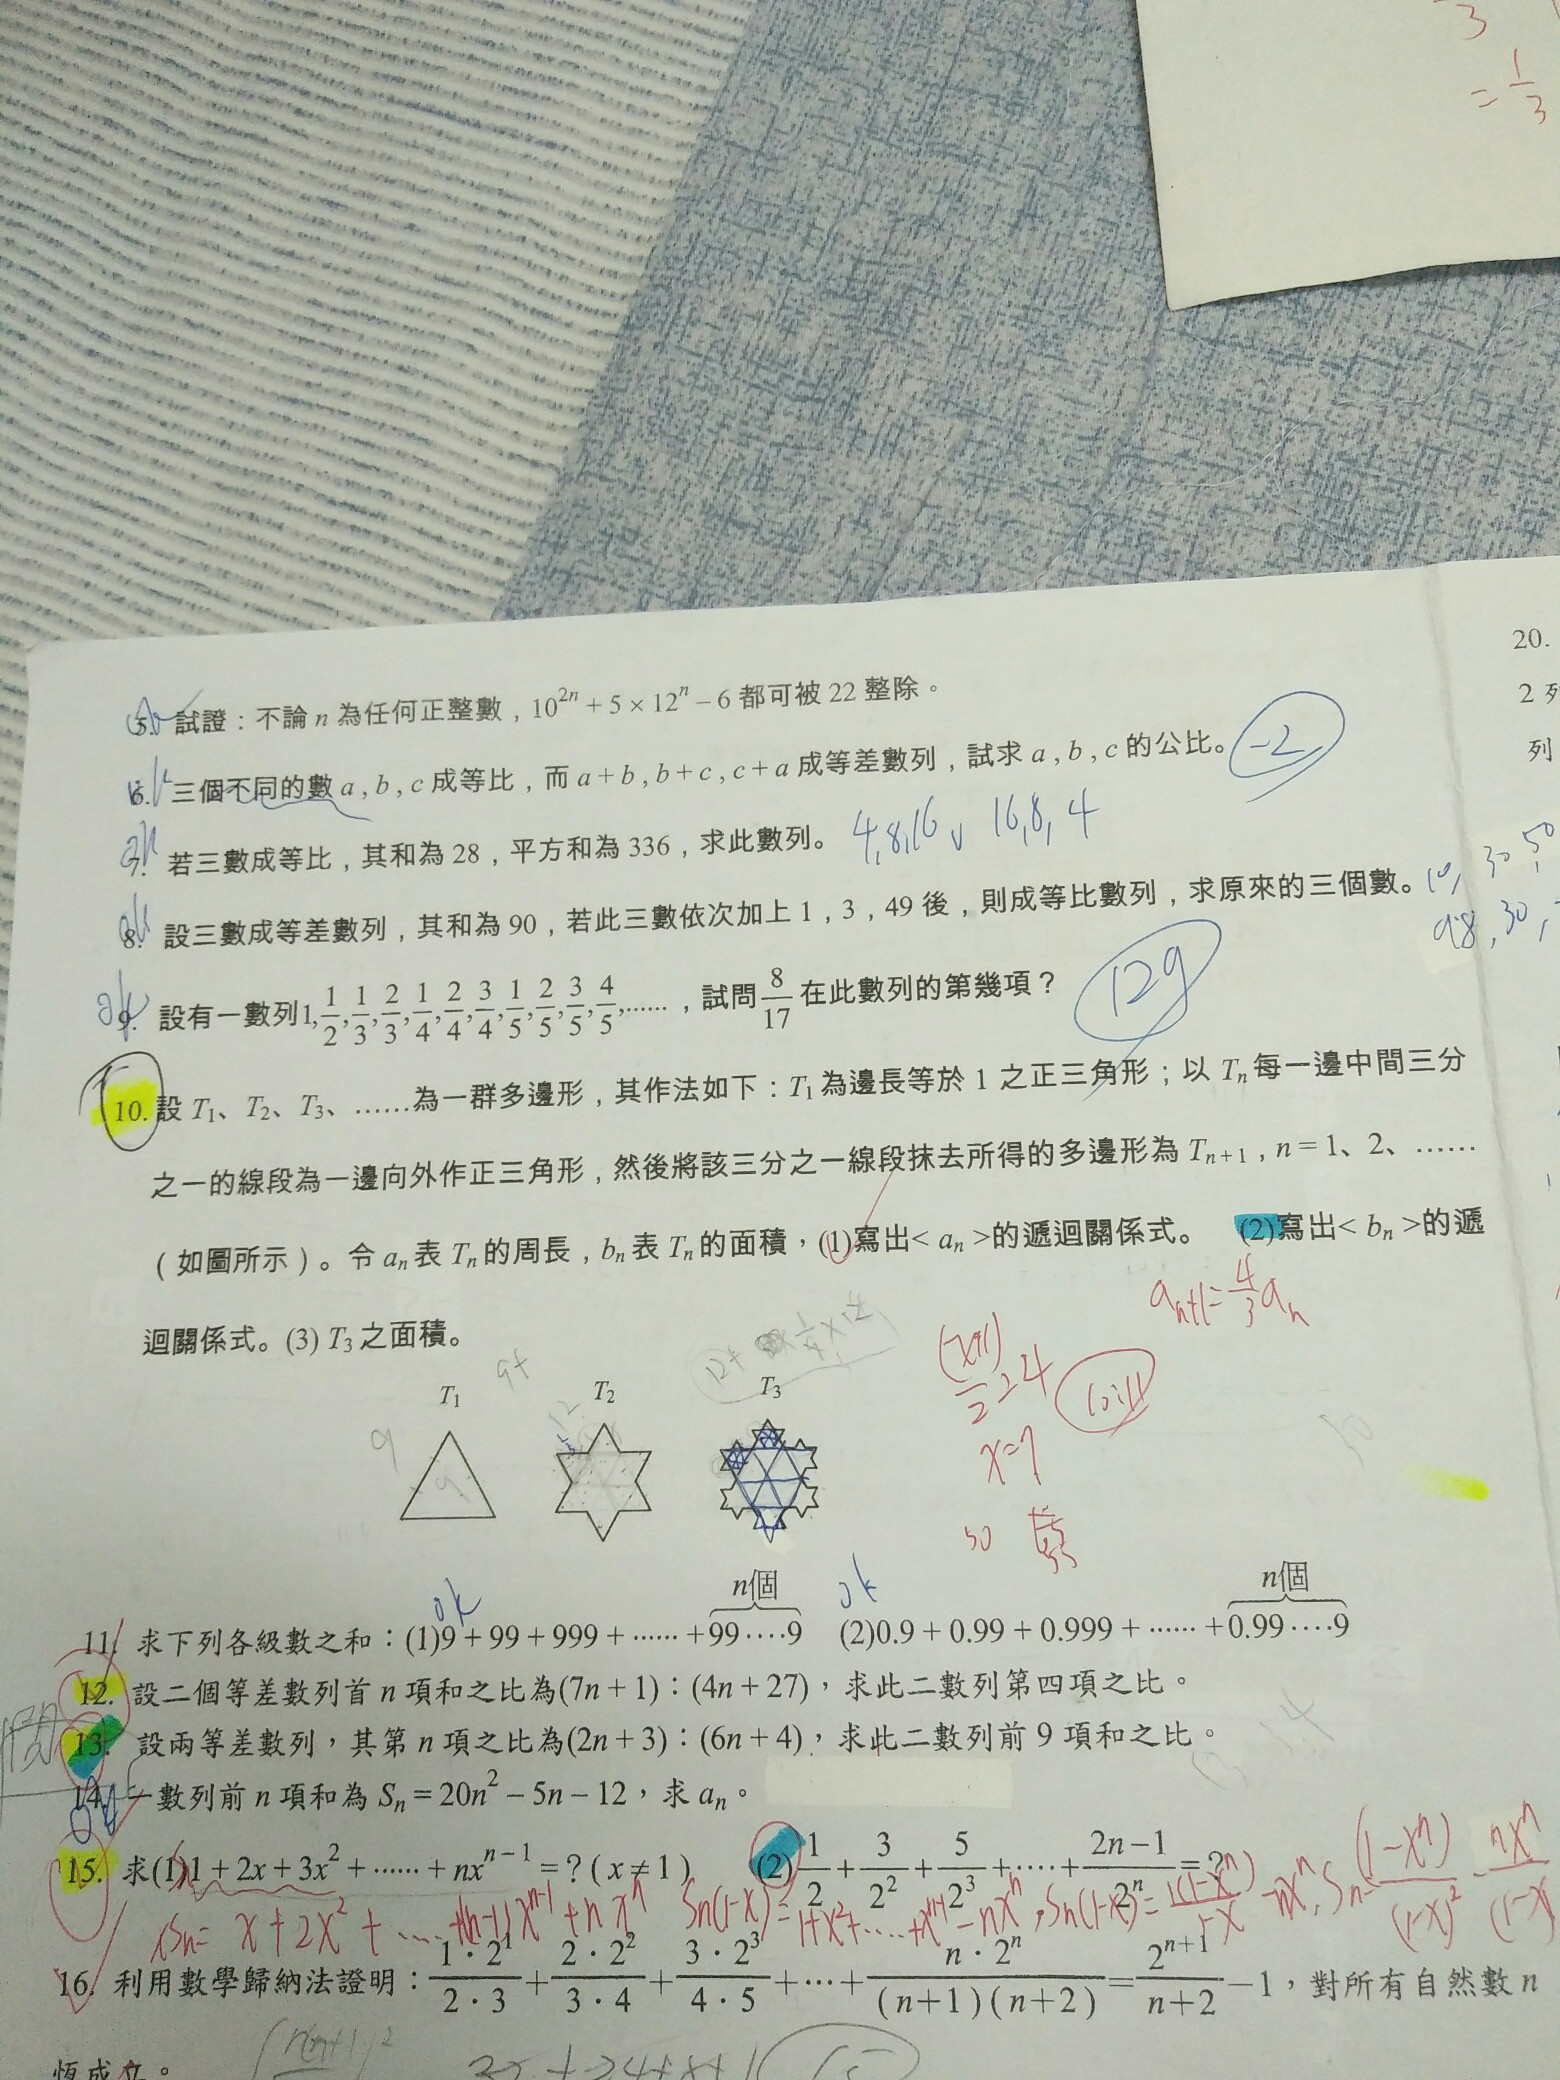 3
= 1/3
20.
2 列
列
5. 試證：不論 n 為任何正整數，10^{2n} + 5 × 12^n − 6 都可被 22 整除。
6. 三個不同的數 a , b , c 成等比，而 a + b , b + c , c + a 成等差數列，試求 a , b , c 的公比。 -2
7. 若三數成等比，其和為 28，平方和為 336，求此數列。 4,8,16 v 16,8,4
8. 設三數成等差數列，其和為 90，若此三數依次加上 1，3，49 後，則成等比數列，求原來的三個數。 10, 30, 50
98, 30,
ok
9. 設有一數列1, 1/2, 1/3, 2/3, 1/4, 2/4, 3/4, 1/5, 2/5, 3/5, 4/5, ......，試問 8/17 在此數列的第幾項？ 129
10. 設 T₁、T₂、T₃、……為一群多邊形，其作法如下：T₁ 為邊長等於 1 之正三角形；以 Tₙ 每一邊中間三分
之一的線段為一邊向外作正三角形，然後將該三分之一線段抹去所得的多邊形為 Tₙ₊₁，n = 1、2、……
（如圖所示）。令 aₙ 表 Tₙ 的周長，bₙ 表 Tₙ 的面積，(1)寫出< aₙ >的遞迴關係式。 (2)寫出< bₙ >的遞
a_{n+1} = 4/3 aₙ
迴關係式。(3) T₃ 之面積。
T₁ T₂ T₃
9
x=7
50
ok ok
11. 求下列各級數之和：(1)9 + 99 + 999 + …… + 99‥‥9 (n個) (2)0.9 + 0.99 + 0.999 + …… + 0.99‥‥9 (n個)
12. 設二個等差數列首 n 項和之比為(7n + 1)：(4n + 27)，求此二數列第四項之比。
問
13. 設兩等差數列，其第 n 項之比為(2n + 3)：(6n + 4)，求此二數列前 9 項和之比。
14. 一數列前 n 項和為 Sₙ = 20n² − 5n − 12，求 aₙ。
15. 求(1)1 + 2x + 3x² + …… + nx^{n−1} = ? ( x ≠ 1 ) (2) 1/2 + 3/2² + 5/2³ + ‥‥ + (2n−1)/2ⁿ = ?
xSn = x + 2x² + .... + (n-1)x^{n-1} + n xⁿ Sn(1-x) = 1+x²+....+x^{n-1} - nxⁿ, Sn(1-x) = 1(1-xⁿ)/1-x - nxⁿ, Sn = (1-xⁿ)/(1-x)² - nxⁿ/(1-x)
16. 利用數學歸納法證明：1·2¹/2·3 + 2·2²/3·4 + 3·2³/4·5 + ⋯ + n·2ⁿ/(n+1)(n+2) = 2^{n+1}/n+2 − 1，對所有自然數 n
恆成立。